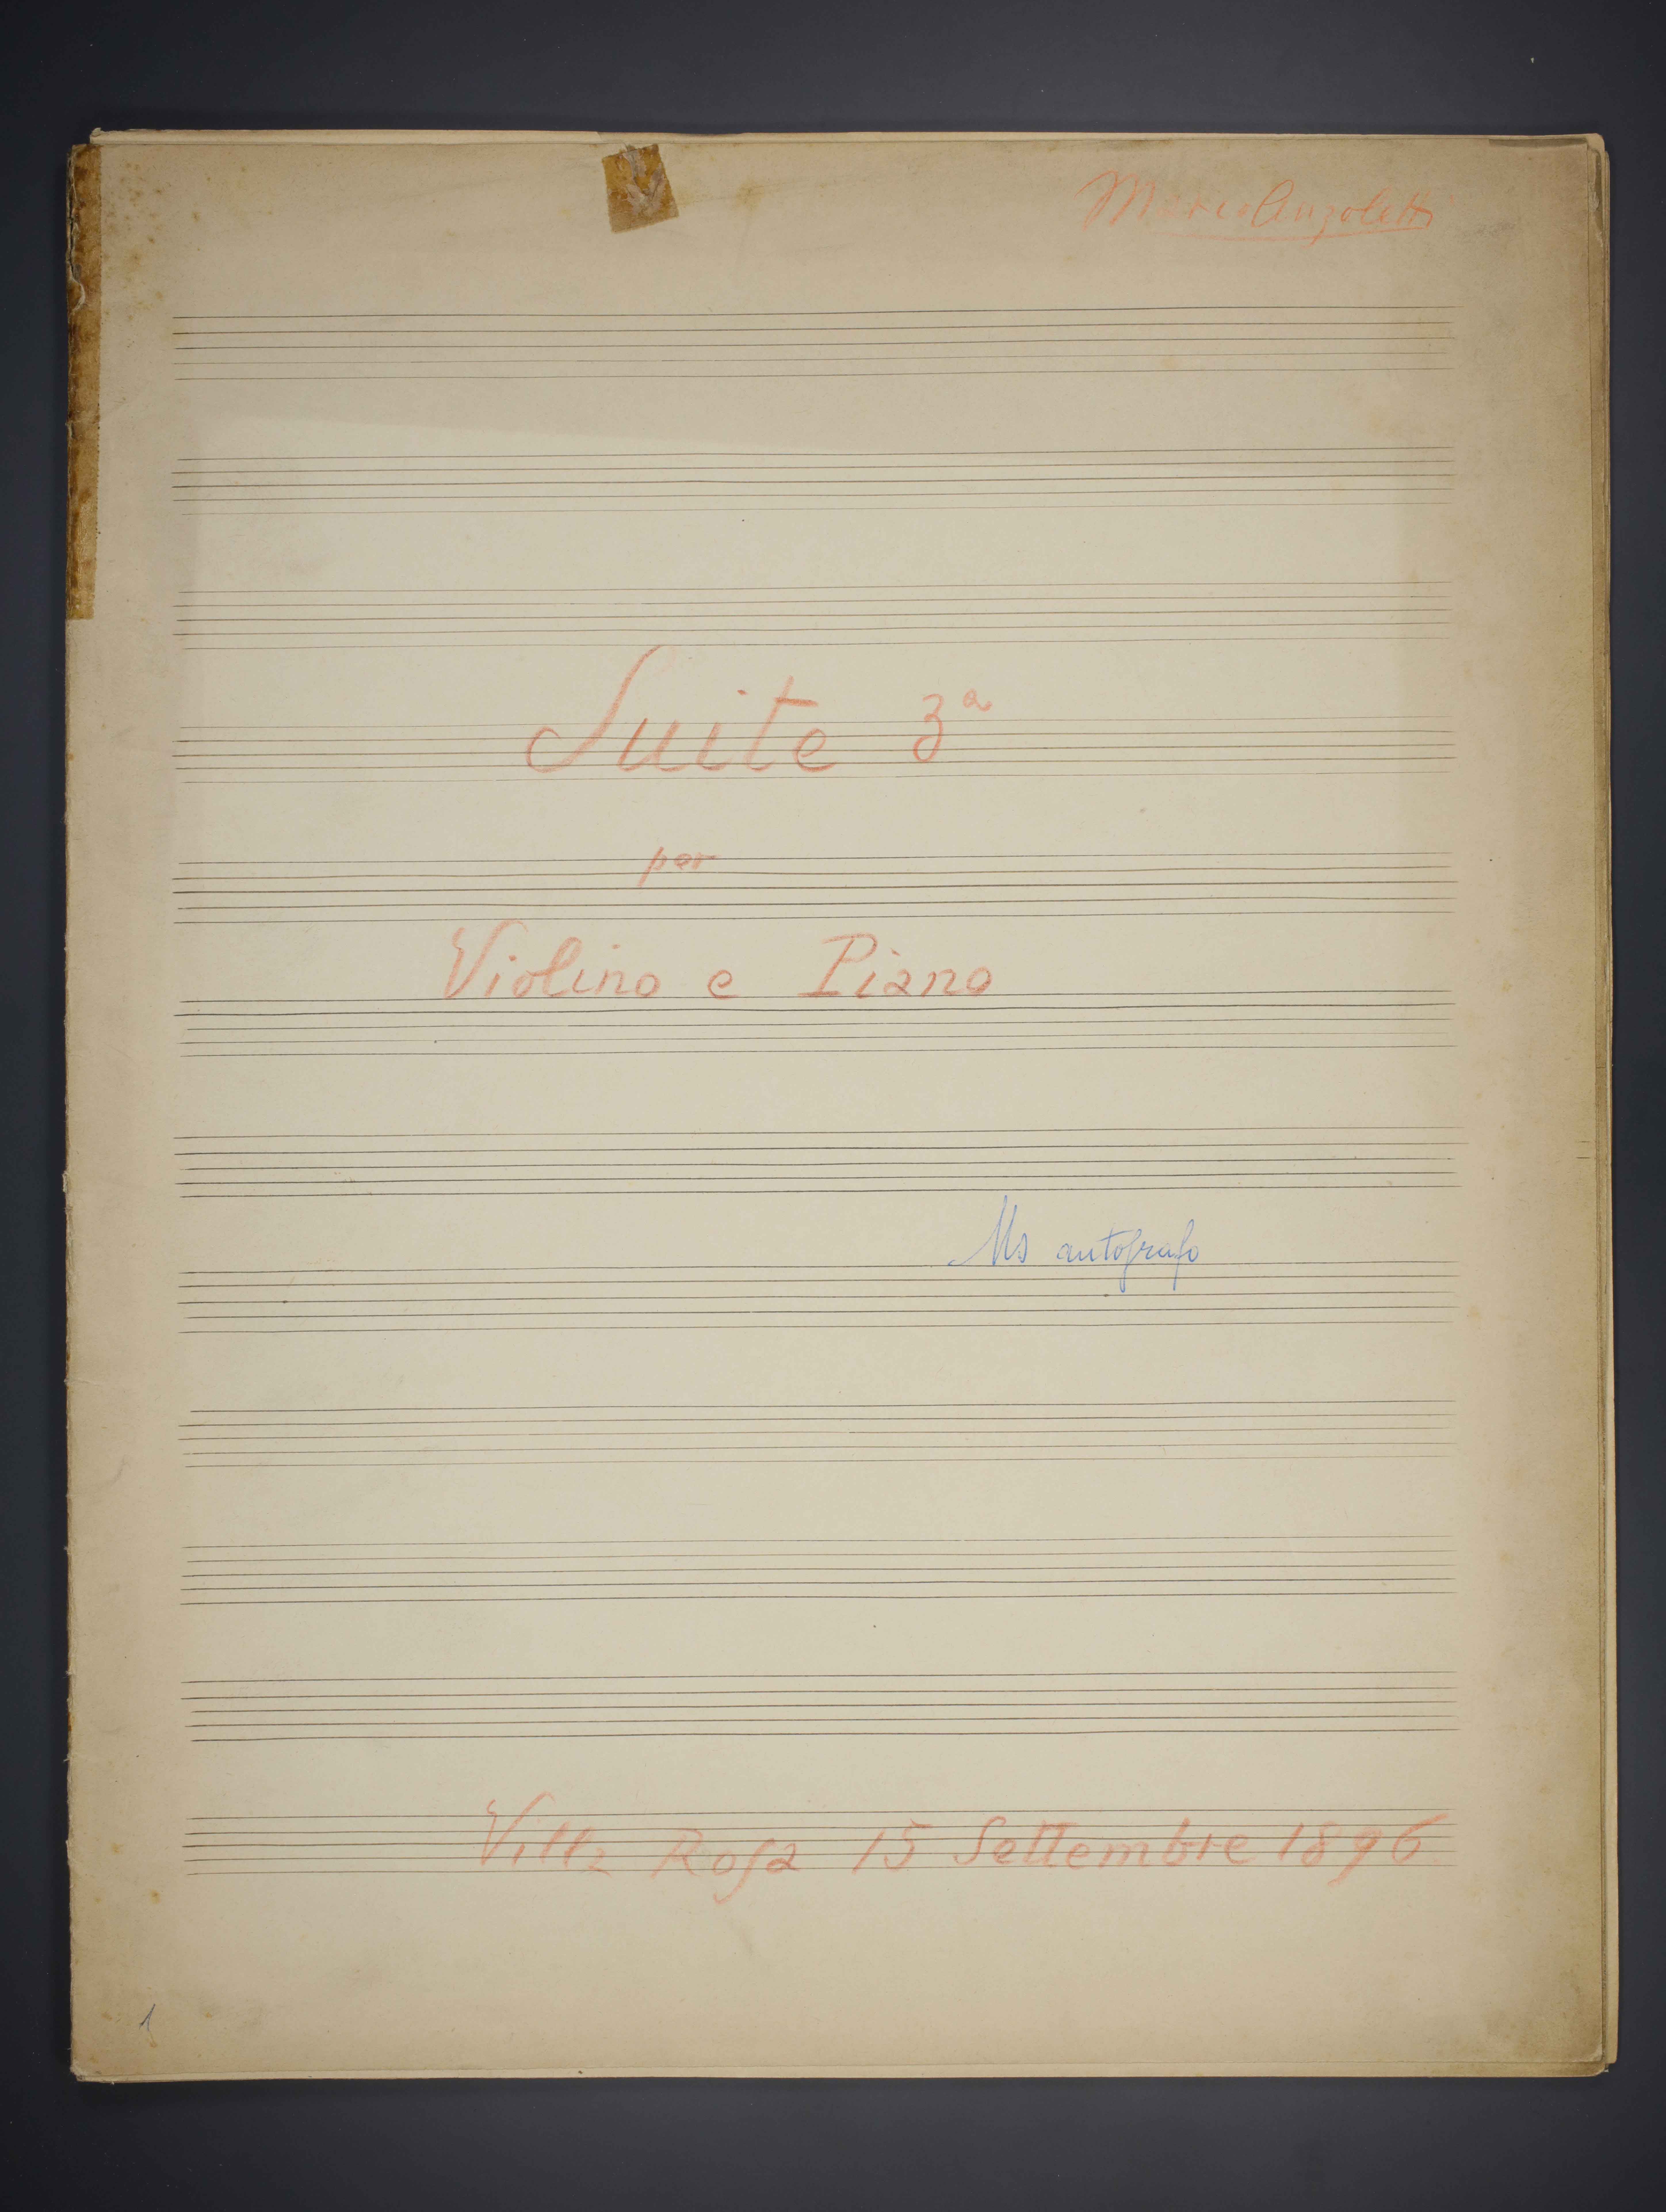 Marco Anzoletti
Suite 3ª
per
Violino e Piano
Ms autografo
Villa Rosa 15 Settembre 1896
1